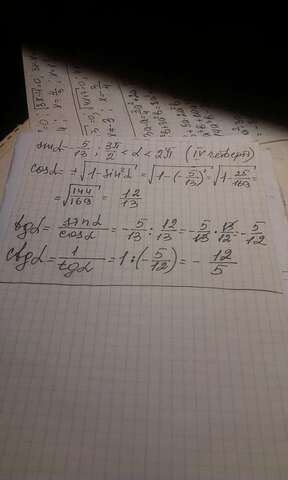 sinα = -5/13; 3π/2 < α < 2π (IV четверть)
cosα = +√(1-sin²α) = √(1-(-5/13)²) = √(1-25/169) =
= √(144/169) = 12/13
tgα = sinα/cosα = -5/13 : 12/13 = -5/13 · 13/12 = -5/12
ctgα = 1/tgα = 1 : (-5/12) = -12/5